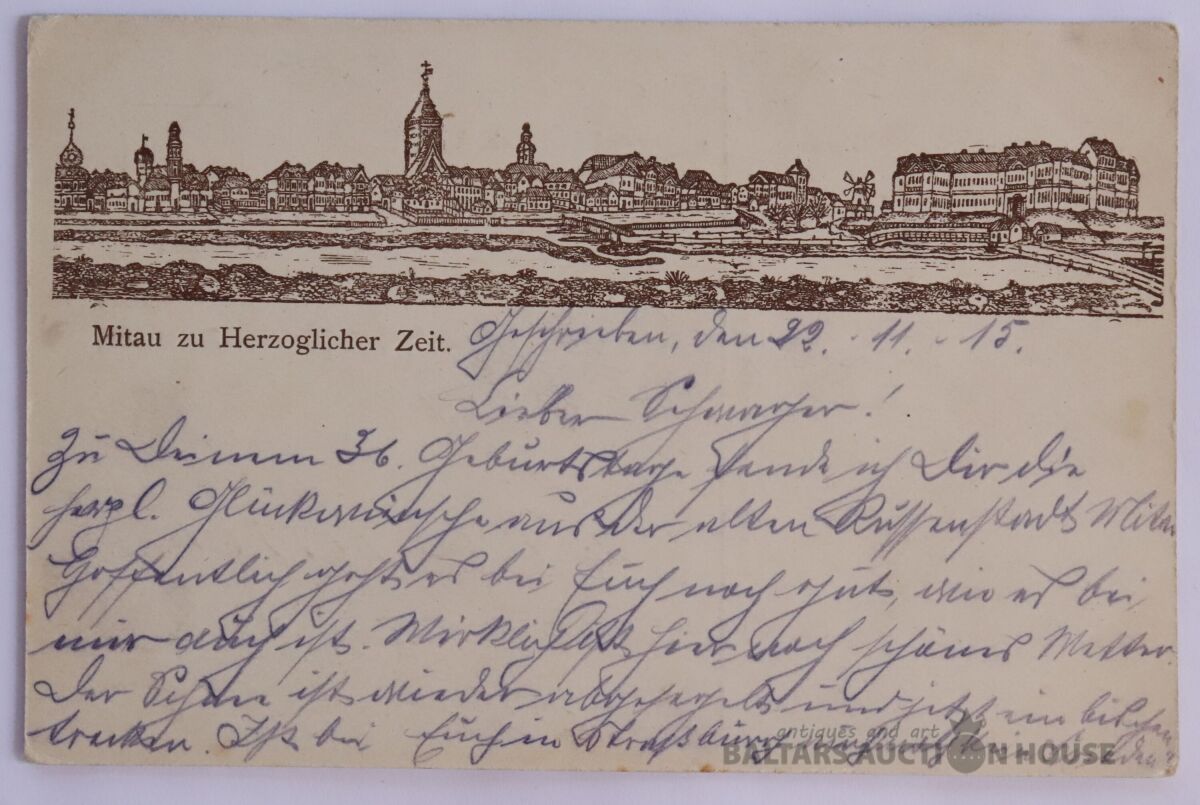 Mitau zu Herzoglicher Zeit.
Geschrieben, den 22. 11. 15.
Lieber Schwager!
Zu Deinem 36. Geburtstage sende ich Dir die
herzl. Glückwünsche aus der alten Russenstadt Mitau
Hoffentlich geht es bei Euch noch gut, wie es bei
mir auch ist. Wirklich ist hier noch schönes Wetter.
Der Schnee ist wieder und jetzt ein bischen
trocken. Ist bei Euch in Straßburg
antiques and art
BALTARS AUCTION HOUSE